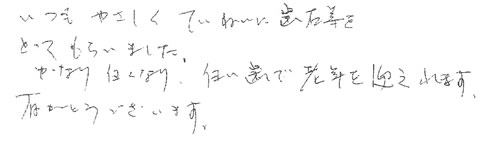 いつもやさしくていねいに歯石等を
とってもらいました。
かなり佳くなり、佳い歯で老年を迎えれます。
有がとうございます。